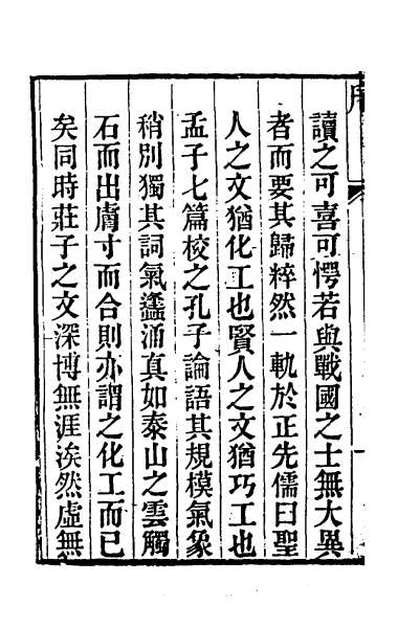 序
讀之可喜可愕若與戰國之士無大異
者而要其歸粹然一軌於正先儒曰聖
人之文猶化工也賢人之文猶巧工也
孟子七篇校之孔子論語其規模氣象
稍別獨其詞氣蠭涌真如泰山之雲觸
石而出膚寸而合則亦謂之化工而已
矣同時莊子之文深博無涯涘然虛無